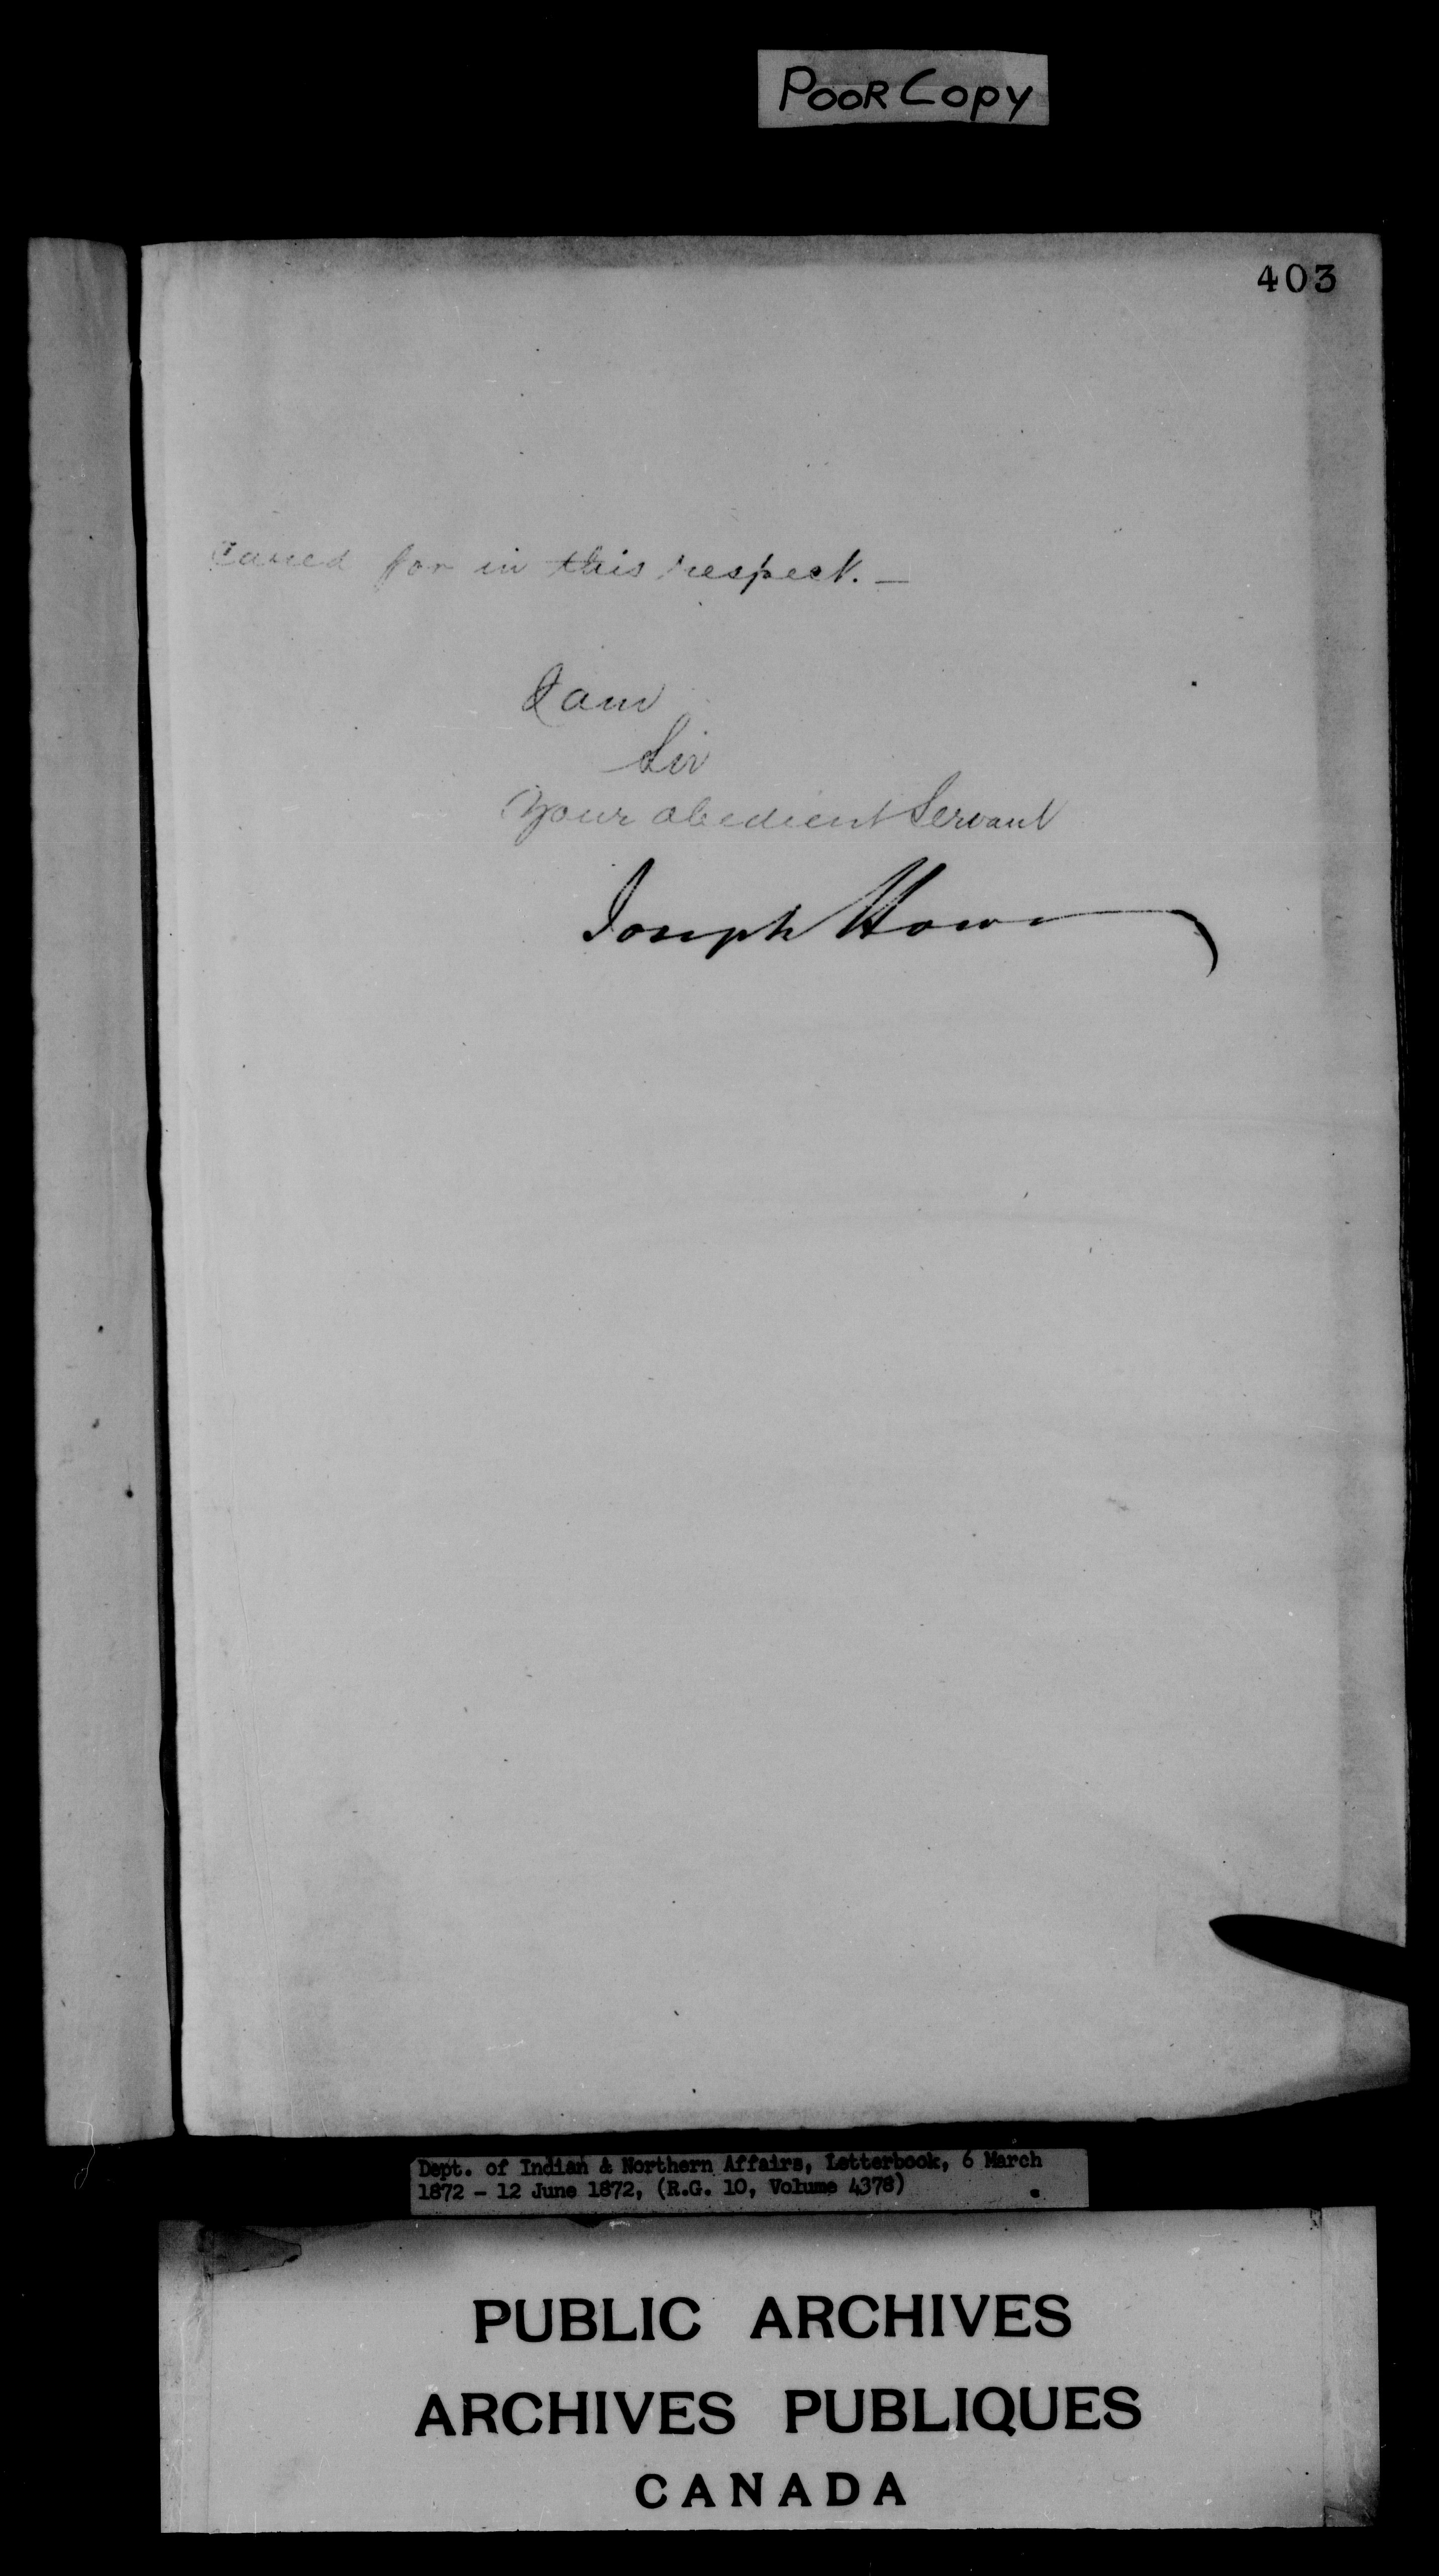 POOR COPY
403
cared for in this respect. —
I am
Sir
Your obedient Servant
Joseph Howe
Dept. of Indian & Northern Affairs, Letterbook, 6 March
1872 - 12 June 1872, (R.G. 10, Volume 4378)
PUBLIC ARCHIVES
ARCHIVES PUBLIQUES
CANADA